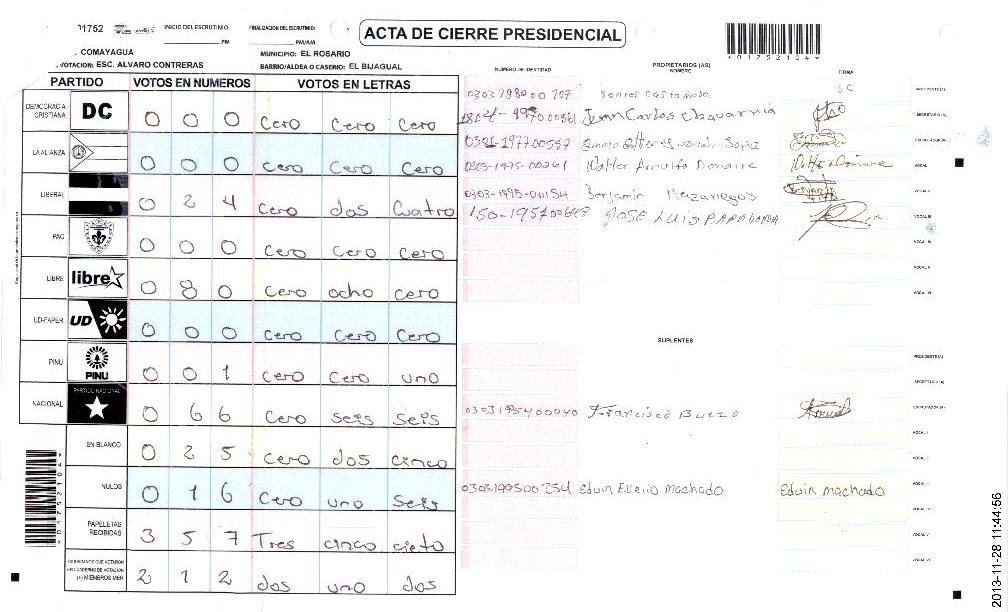 1752 INICIO DEL ESCRUTINIO: PM FINALIZACION DEL ESCRUTINIO: PM/AM
ACTA DE CIERRE PRESIDENCIAL
*01752104*
COMAYAGUA MUNICIPIO: EL ROSARIO
VOTACION: ESC. ALVARO CONTRERAS BARRIO/ALDEA O CASERIO: EL BIJAGUAL
PARTIDO VOTOS EN NUMEROS VOTOS EN LETRAS
DEMOCRACIA CRISTIANA DC 0 0 0 Cero Cero Cero
LA ALIANZA 0 0 0 Cero Cero Cero
LIBERAL 0 2 4 Cero dos Cuatro
PAC 0 0 0 Cero Cero Cero
LIBRE libre 0 8 0 Cero ocho cero
UD-FAPER UD 0 0 0 Cero Cero Cero
PINU PINU 0 0 1 Cero Cero uno
NACIONAL PARTIDO NACIONAL 0 6 6 Cero seis seis
EN BLANCO 0 2 5 Cero dos cinco
NULOS 0 1 6 Cero uno Seis
PAPELETAS RECIBIDAS 3 5 7 Tres cinco cieto
CIUDADANOS QUE VOTARON EN CUADERNO DE VOTACION (+) MIEMBROS MER 2 1 2 dos uno dos
*01752104*
NUMERO DE IDENTIDAD PROPIETARIOS (AS) NOMBRE FIRMA
PRESIDENTE(A)
Juan Carlos SECRETARIO (A)
ESCRUTADOR (A)
0303-1975-00261 Walter Arnulfo Donaire VOCAL I
Benjamin Mazariegos VOCAL II
JOSE LUIS VOCAL III
VOCAL IV
VOCAL V
VOCAL VI
SUPLENTES
PRESIDENTE(A)
SECRETARIO (A)
0303195400040 Francisco Bueso ESCRUTADOR (A)
VOCAL I
VOCAL II
0303199500254 Edwin Evelio Machado Edwin machado VOCAL III
VOCAL IV
VOCAL V
VOCAL VI
2013-11-28 11:44:56